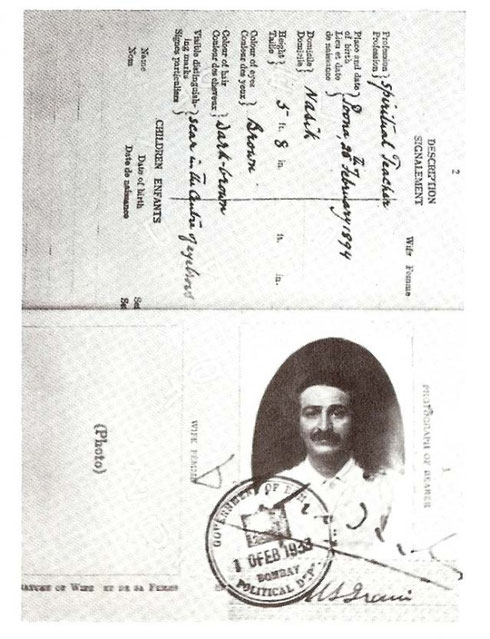 2
DESCRIPTION
SIGNALEMENT
Wife Femme
Profession } Spiritual Teacher
Profession
Place and date } Poona 25th February 1894
of birth
Lieu et date
de naissance
Domicile } Nasik
Domicile
Height } 5 ft. 8 in. ft. in.
Taille
Colour of eyes } Brown
Couleur des yeux
Colour of hair } Dark-brown
Couleur des cheveux
Visible distinguish- } scar in the centre of eyebrows
ing marks
Signes particuliers
CHILDREN ENFANTS
Name Date of birth
Nom Date de naissance
(Photo)
WIFE FEMME
PHOTOGRAPH OF BEARER
GOVERNMENT OF
FEB 1933
BOMBAY
POLITICAL
OF WIFE ET DE SA FEMME
M S Irani